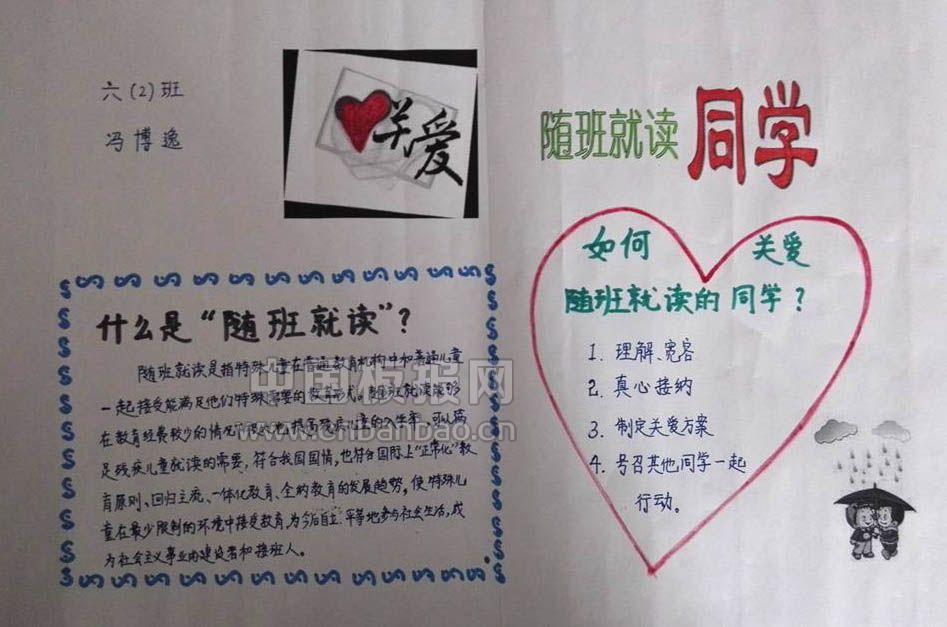 六(2)班
冯博逸
关爱
随班就读 同学
如何 关爱
随班就读的同学？
1. 理解、宽容
2. 真心接纳
3. 制定关爱方案
4. 号召其他同学一起
行动。
什么是“随班就读”？
随班就读是指特殊儿童在普通教育机构中和普通儿童
一起接受能满足他们特殊需要的教育形式。随班就读能够
在教育经费较少的情况下很大地提高残疾儿童的入学率，可以满
足残疾儿童就读的需要，符合我国国情，也符合国际上“正常化”教
育原则、回归主流、一体化教育、全纳教育的发展趋势，使特殊儿
童在最少限制的环境中接受教育，为今后自立、平等地参与社会生活，成
为社会主义事业的建设者和接班人。
中国板报网
www.cnbanbao.cn